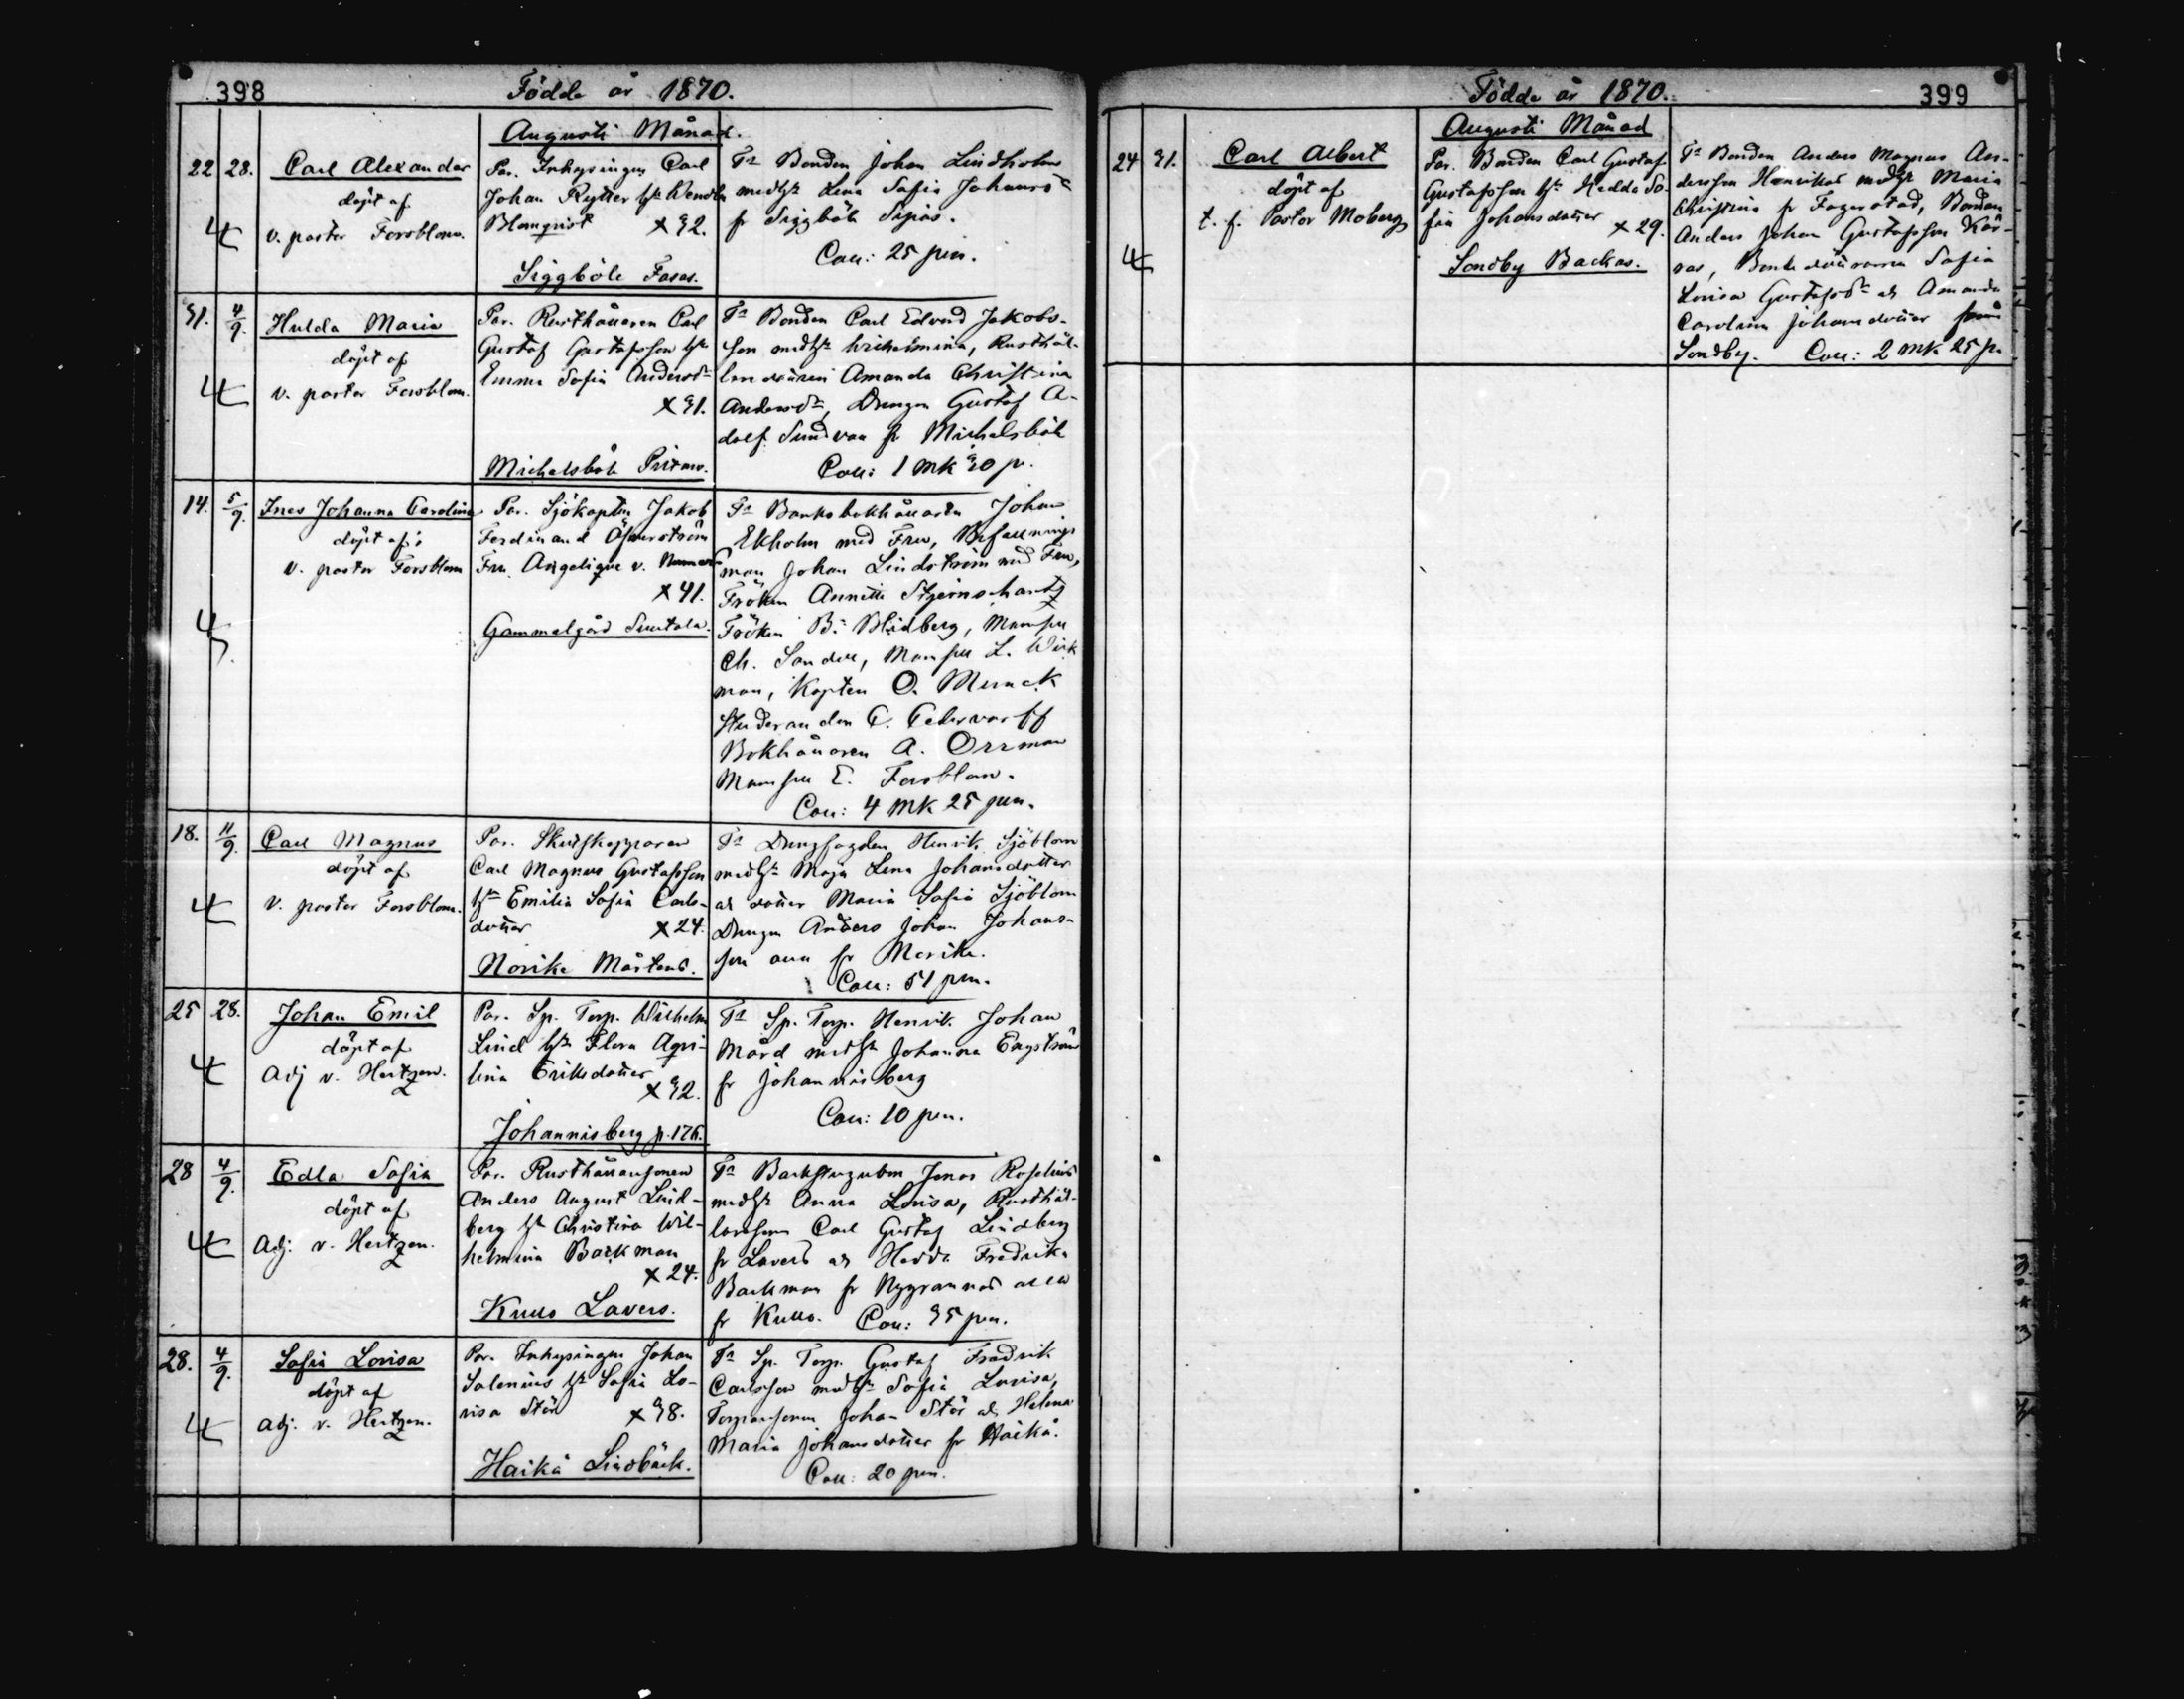 398
Födde år 1870.
Augusti Månad.
22 28. Carl Alexander
döpt af
v. pastor Forsblom.
Par. Inhysingen Carl
Johan Rytter h:u Wendla
Blomqvist x 32.
Siggböle Fasas.
F:a Bonden Johan Lindholm
med h:u Lena Sofia Johansd:r
fr Siggböle Sipias.
Coll: 25 pen.
31. 4/9. Hulda Maria
döpt af
v. pastor Forsblom.
Par. Rusthållaren Carl
Gustaf Gustafsson h:u
Emma Sofia Andersd:r
x 31.
Michelsböle
F:a Bonden Carl Edvard Jakobs-
son med h:u Wilhelmina, Rusthål-
laredottren Amanda Christina
Andersd:r, Drengen Gustaf A-
dolf Sundvall fr Michelsböle
Coll: 1 mk 30 p.
14. 5/9. Ines Johanna Carolina
döpt af
v. pastor Forsblom
Par. Sjökapten Jakob
Ferdinand Åkerström
Fru Angelique v.
x 41.
Gammelgård
F:a Banksbokhållaren Johan
Ekholm med Fru, Befallnings
man Johan Lindström med Fru,
Fröken Annette Stjernschantz
Fröken B. Blidberg, Mamsell
Ch. Sandell, Mamsell L. Wik
man, Kapten O.
Studeranden C.
Bokhållaren A. Orrman
Mamsell E. Forsblom.
Coll: 4 mk 25 pen.
18. 11/9. Carl Magnus
döpt af
v. pastor Forsblom.
Par. Skutskepparen
Carl Magnus Gustafsson
h:u Emilia Sofia Carls-
dotter x 24.
Norike Mårtens.
F:a Drengfogden Henrik Sjöblom
med h:u Maja Lena Johansdotter
och dotter Maria Sofia Sjöblom
Drengen Anders Johan Johans-
son alla fr Norike.
Coll: 51 pen.
25 28. Johan Emil
döpt af
Adj v. Hertzen.
Par. Sp. Torp. Wilhelm
Lind h:u Flora Agri-
lina Eriksdotter
x 32.
Johannisberg p. 176.
F:a Sp. Torp. Henrik Johan
Mård med h:u Johanna Engström
fr Johannisberg
Coll: 10 pen.
28 4/9. Edla Sofia
döpt af
Adj. v. Hertzen.
Par. Rusthållaresonen
Anders August Lind-
berg h:u Christina Wil-
helmina Backman
x 24.
Kullo Lavers.
F:a Backstugubon Jonas Roselius
med h:u Anna Lovisa, Rusthål-
laresonen Carl Gustaf Lindberg
fr Lavers och Hedda Fredrika
Backman fr Nygrannas alla
fr Kullo. Coll: 35 pen.
28. 4/9. Sofia Lovisa
döpt af
Adj. v. Hertzen.
Par. Inhysingen Johan
Salenius h:u Sofia Lo-
visa Stör x 38.
Haikå Lindbäck.
F:a Sp. Torp. Gustaf Fredrik
Carlsson med h:u Sofia Lovisa,
Torparesonen Johan Stör och Helena
Maria Johansdotter fr Haikå.
Coll: 20 pen.
Födde år 1870.
399
Augusti Månad
24 31. Carl Albert
döpt af
t. f. Pastor Moberg
Par. Bonden Carl Gustaf
Gustafsson h:u Hedda So-
fia Johansdotter x 29.
Sondby Backas.
F:a Bonden Anders Magnus An-
dersson Henrikas med h:u Maria
Christina fr Fagerstad, Bonden
Anders Johan Gustafsson Kär-
ras, Bondedöttrarna Sofia
Lovisa Gustafsd:r och Amanda
Carolina Johansdotter från
Sondby. Coll: 2 mk 25 p.